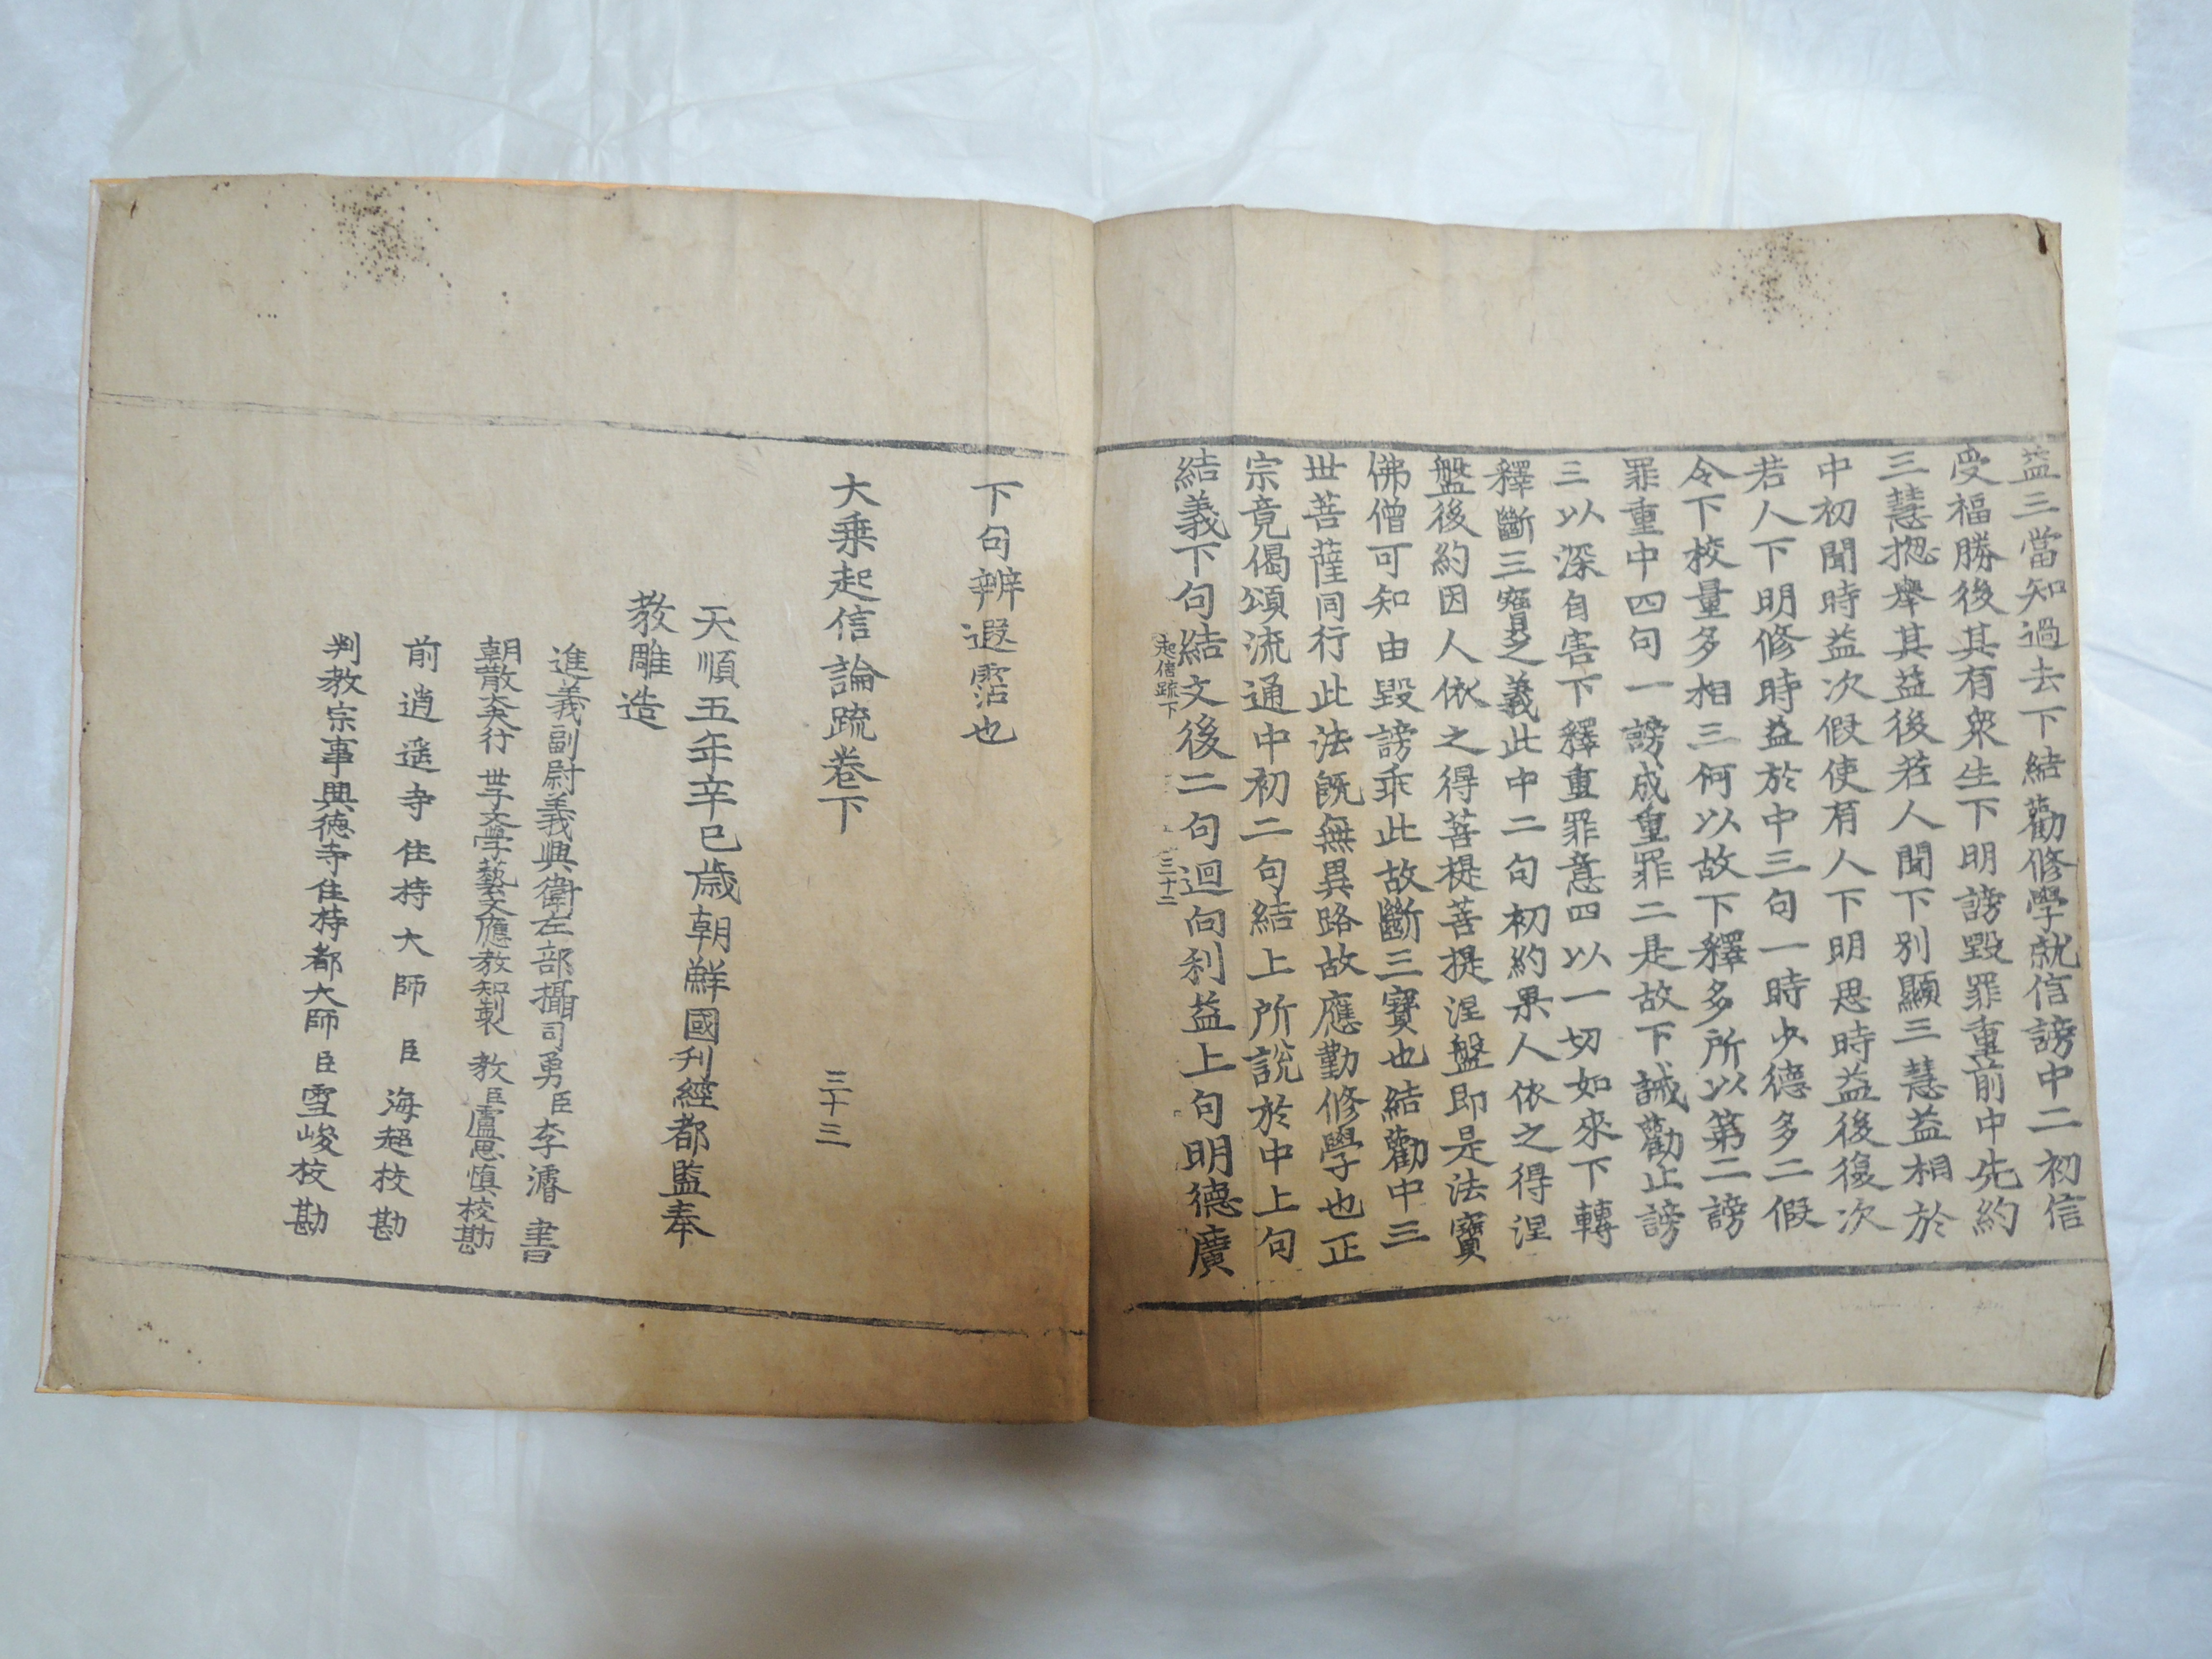 益三當知過去下結勸修學就信謗中二初信
受福勝後其有衆生下明謗毀罪重前中先約
三慧揔舉其益後若人聞下別顯三慧益相於
中初聞時益次假使有人下明思時益後復次
若人下明修時益於中三句一時少德多二假
令下校量多相三何以故下釋多所以第二謗
罪重中四句一謗成重罪二是故下誡勸止謗
三以深自害下釋重罪意四以一切如來下轉
釋斷三寶之義此中二句初約果人依之得涅
盤後約因人依之得菩提菩提涅盤即是法寶
佛僧可知由毀謗乖此故斷三寶也結勸中三
世菩薩同行此法旣無異路故應勤修學也正
宗竟偈頌流通中初二句結上所說於中上句
結義下句結文後二句迴向利益上句明德廣
起信疏下 三十二
下句辨遐霑也
大乗起信論疏卷下 三十三
天順五年辛巳歲朝鮮國刊經都監奉
教雕造
進義副尉義興衛左部攝司勇臣李濬書
朝散大夫行世子文學藝文應敎知製敎臣盧思愼校勘
前逍遥寺住持大師臣海超校勘
判教宗事興德寺住持都大師臣雪峻校勘